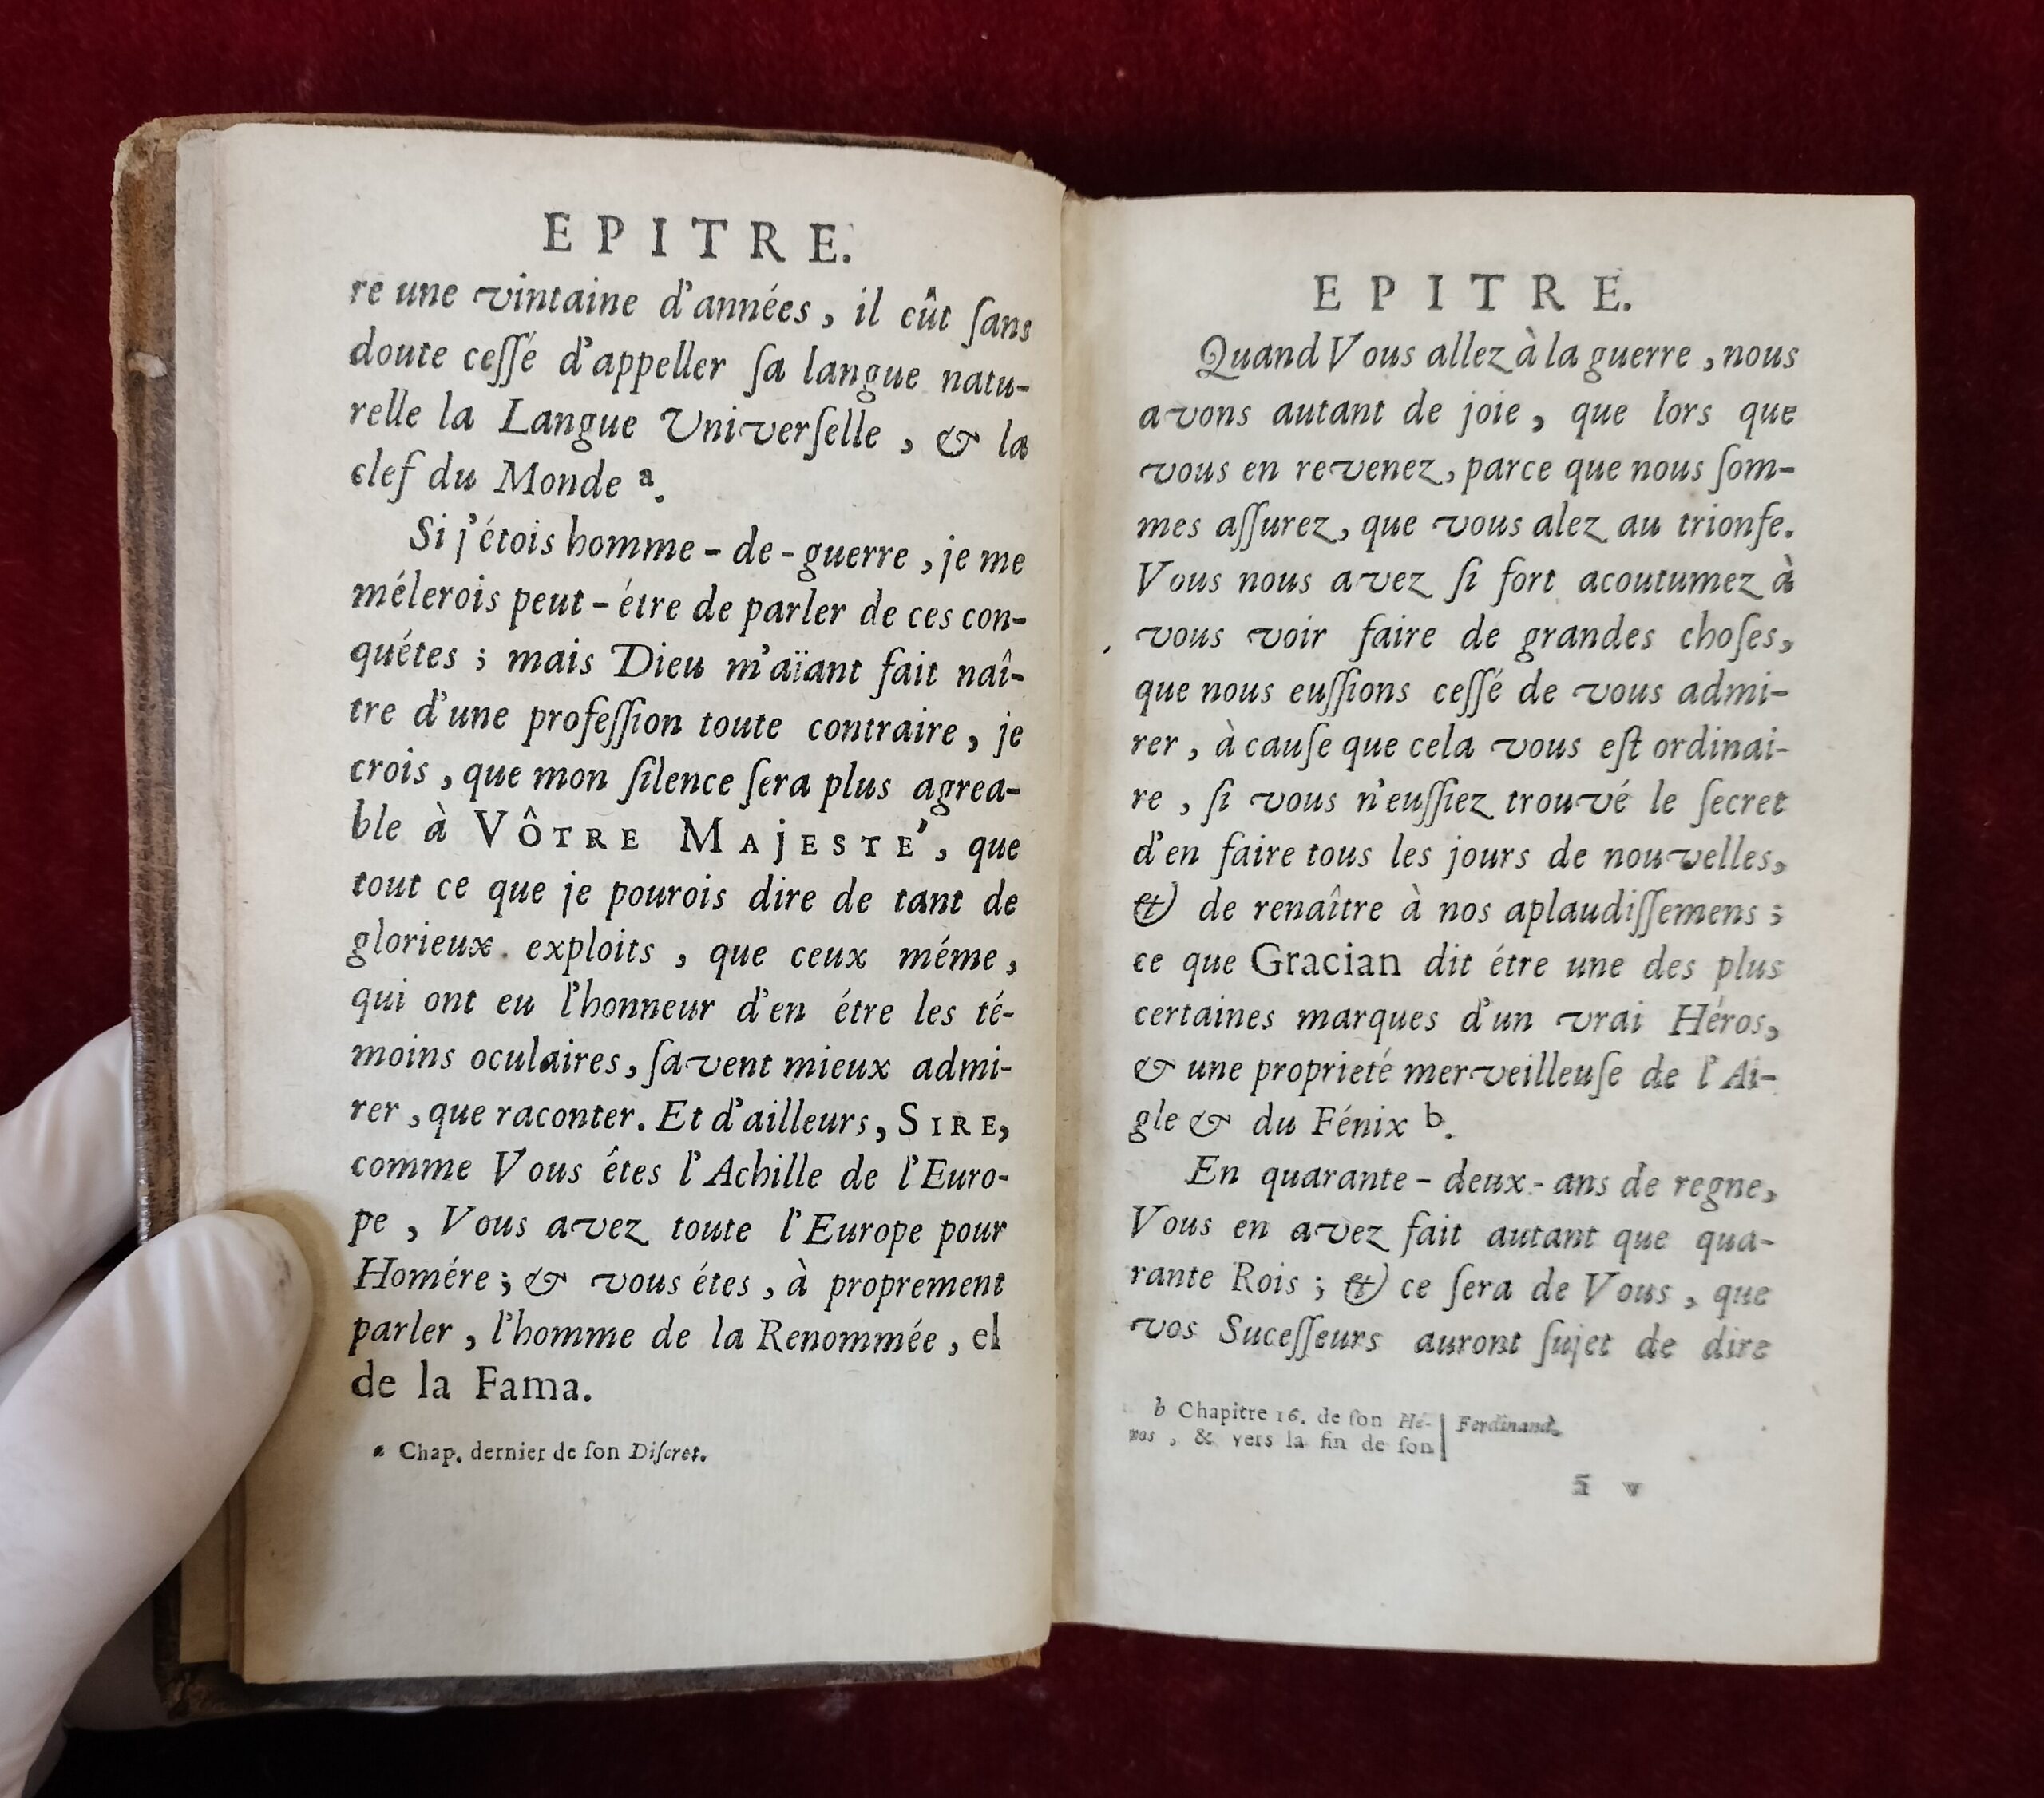 EPITRE.
re une vintaine d'années, il eût ſans
doute ceſſé d'appeller ſa langue natu-
relle la Langue Univerſelle, & la
clef du Monde a.
Si j'étois homme-de-guerre, je me
mélerois peut-étre de parler de ces con-
quétes; mais Dieu m'aïant fait naî-
tre d'une profeſſion toute contraire, je
crois, que mon ſilence ſera plus agrea-
ble à VÔTRE MAJESTE', que
tout ce que je pourois dire de tant de
glorieux exploits, que ceux méme,
qui ont eu l'honneur d'en étre les té-
moins oculaires, ſavent mieux admi-
rer, que raconter. Et d'ailleurs, SIRE,
comme Vous étes l'Achille de l'Euro-
pe, Vous avez toute l'Europe pour
Homére; & vous étes, à proprement
parler, l'homme de la Renommée, el
de la Fama.
a Chap. dernier de ſon Diſcret.
EPITRE.
Quand Vous allez à la guerre, nous
avons autant de joie, que lors que
vous en revenez, parce que nous ſom-
mes aſſurez, que vous alez au trionfe.
Vous nous avez ſi fort acoutumez à
vous voir faire de grandes choſes,
que nous euſſions ceſſé de vous admi-
rer, à cauſe que cela vous eſt ordinai-
re, ſi vous n'euſſiez trouvé le ſecret
d'en faire tous les jours de nouvelles,
& de renaître à nos aplaudiſſemens;
ce que Gracian dit étre une des plus
certaines marques d'un vrai Héros,
& une proprieté merveilleuſe de l'Ai-
gle & du Fénix b.
En quarante-deux-ans de regne,
Vous en avez fait autant que qua-
rante Rois; & ce ſera de Vous, que
vos Suceſſeurs auront ſujet de dire
b Chapitre 16. de ſon Hé-
ros, & vers la fin de ſon
Ferdinand.
ã v